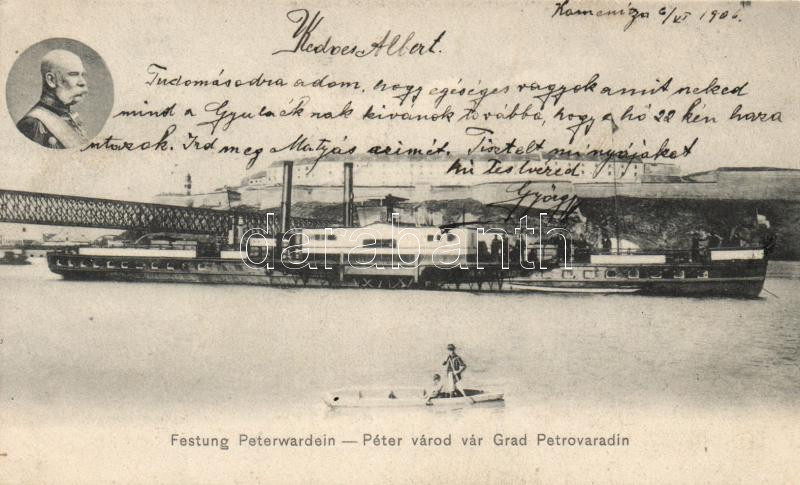 Kamenitza 6/VI 1906
Kedves Albert.
Tudomásodra adom, hogy egéséges vagyok amit neked
mind a Gyuláéknak kivánok továbbá, hogy a hó 22 kén haza
utazok. Ird meg Matyás czimét. Tisztelt mindnyájokat
hű testvéred.
György
darabanth
Festung Peterwardein — Péter várod vár Grad Petrovaradin